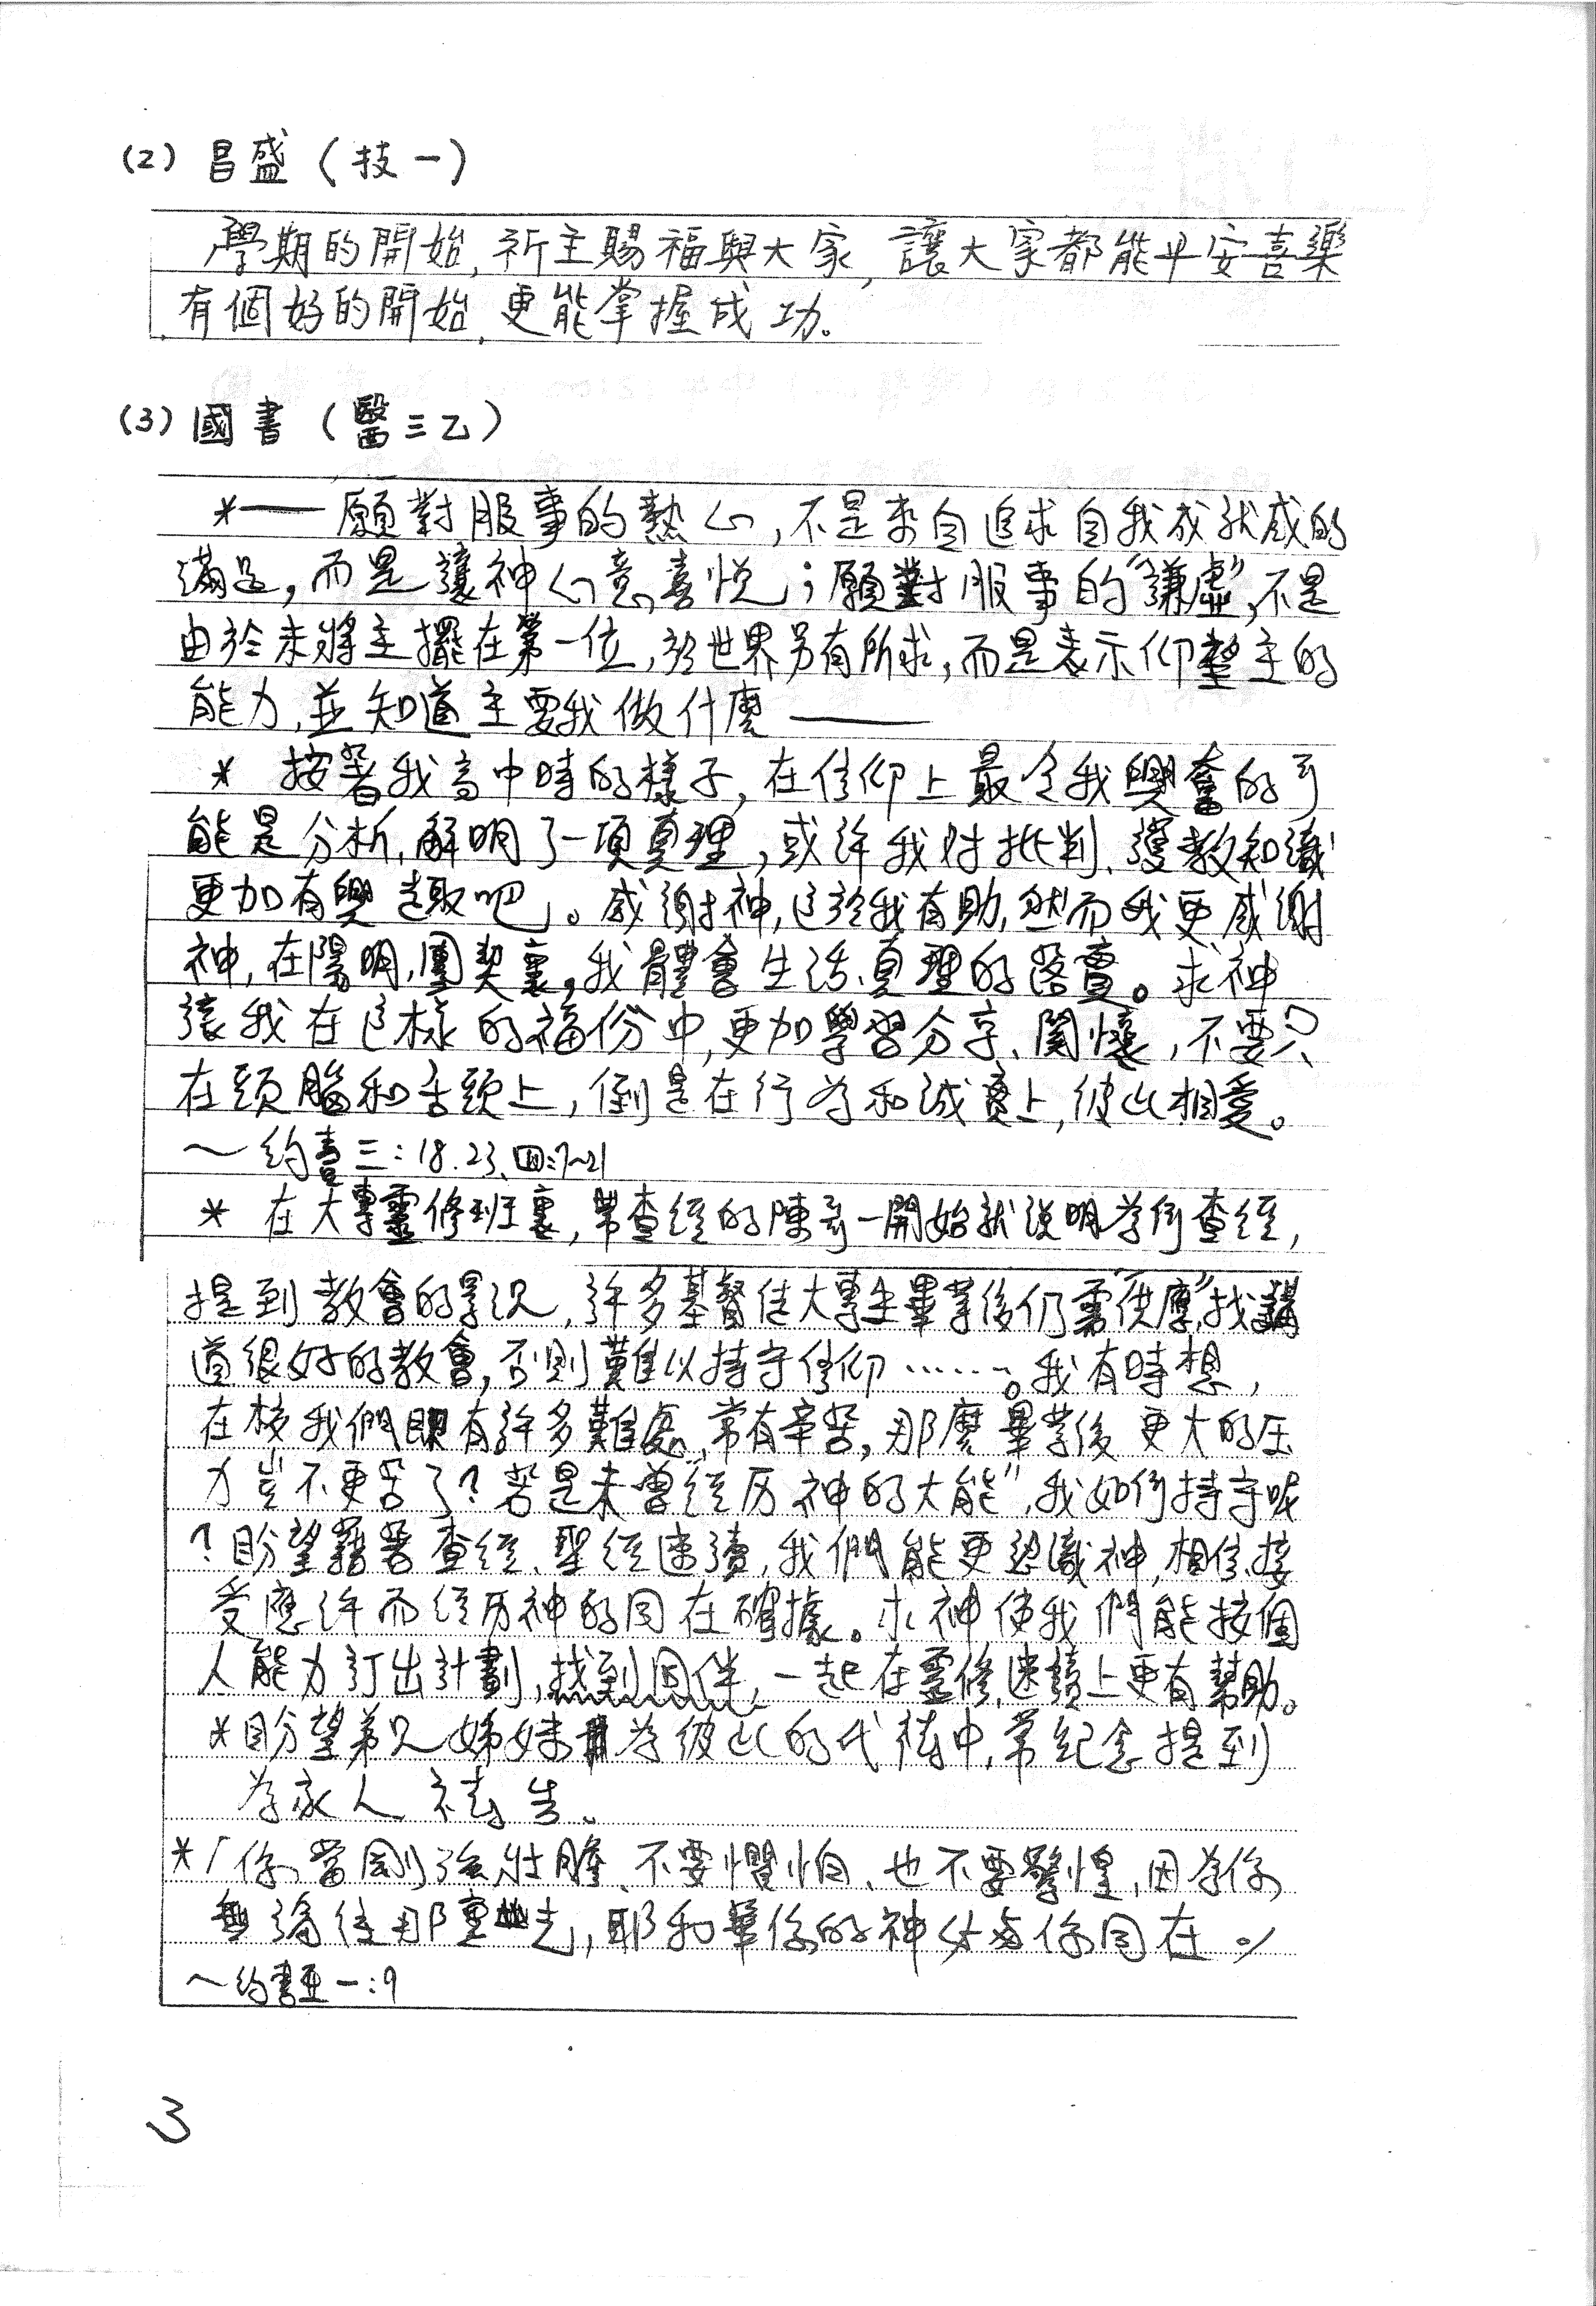 (2) 昌盛(技一)
學期的開始,祈主賜福與大家,讓大家都能平安喜樂
有個好的開始,更能掌握成功。
(3) 國書(醫三乙)
*——願對服事的熱心,不是來自追求自我成就感的
滿足,而是讓神心意喜悅;願對服事的"謙虛",不是
由於未將主擺在第一位,於世界另有所求,而是表示仰望主的
能力,並知道主要我做什麼——
* 按著我高中時的樣子,在信仰上最令我興奮的可
能是分析,解明了一項真理,或許我對批判、護教知識
更加有興趣吧」。感謝神,這於我有助,然而我更感謝
神,在陽明,團契裏,我體會生活、真理的落實。求神
讓我在這樣的福份中,更加學習分享、關懷,不要只
在頭腦和舌頭上,倒是在行為和誠實上,彼此相愛。
~約壹三:18.23、四:7~21
* 在大專靈修班裏,帶查經的陳哥一開始就說明為何查經,
提到教會的景況,許多基督徒大專生畢業後仍需"供應",找講
道很好的教會,否則難以持守信仰……。我有時想,
在校我們既有許多難處,常有辛苦,那麼畢業後更大的壓
力豈不更苦了?若是未曾"經历神的大能",我如何持守呢
?盼望藉著查經、聖經速讀,我們能更認識神,相信、接
受應許而經历神的同在確據。求神使我們能按個
人能力訂出計劃,找到同伴,一起在靈修、速讀上更有幫助。
*盼望弟兄姊妹為彼此的代禱中,常紀念提到
為家人禱告。
*「你當剛強壯膽、不要懼怕、也不要驚惶,因為你
無論往那裏去,耶和華你的神必與你同在。」
~約書亞一:9
3